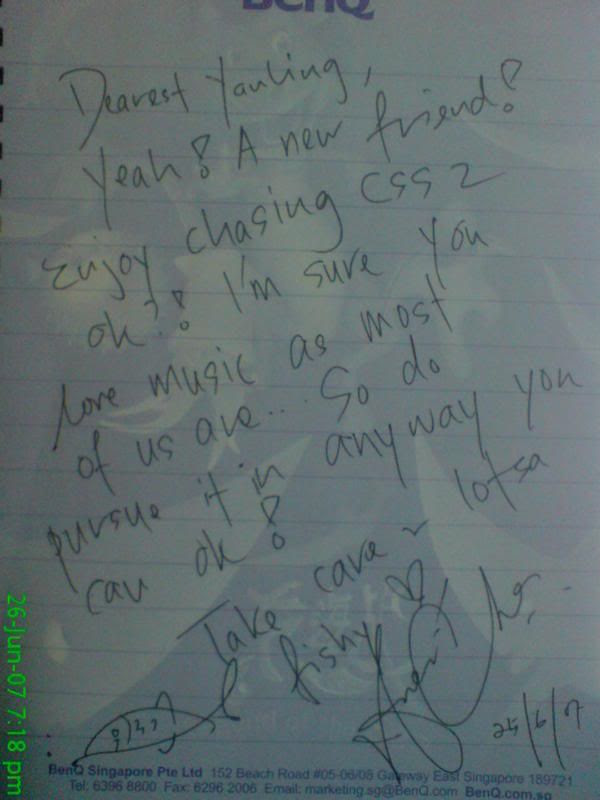 BenQ
Dearest Yauling,
Yeah! A new friend!
Enjoy chasing CSS 2
ok?! I'm sure you
love music as most
of us are... So do
pursue it in anyway you
can ok!
Take care ~ lotsa
fishy ♡
25/6/07
26-Jun-07 7:18 pm
BenQ Singapore Pte Ltd 152 Beach Road #05-06/08 Gateway East Singapore 189721
Tel: 6396 8800 Fax: 6296 2006 Email: marketing.sg@BenQ.com BenQ.com.sg